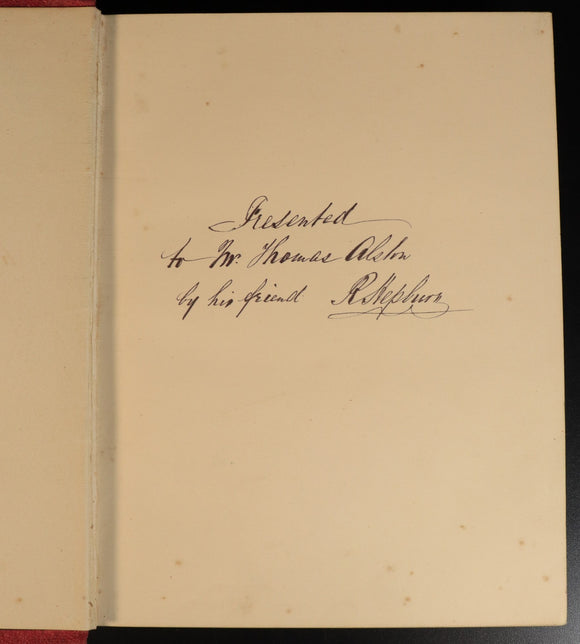 Presented
to Mr. Thomas Alston
by his friend R Hepburn